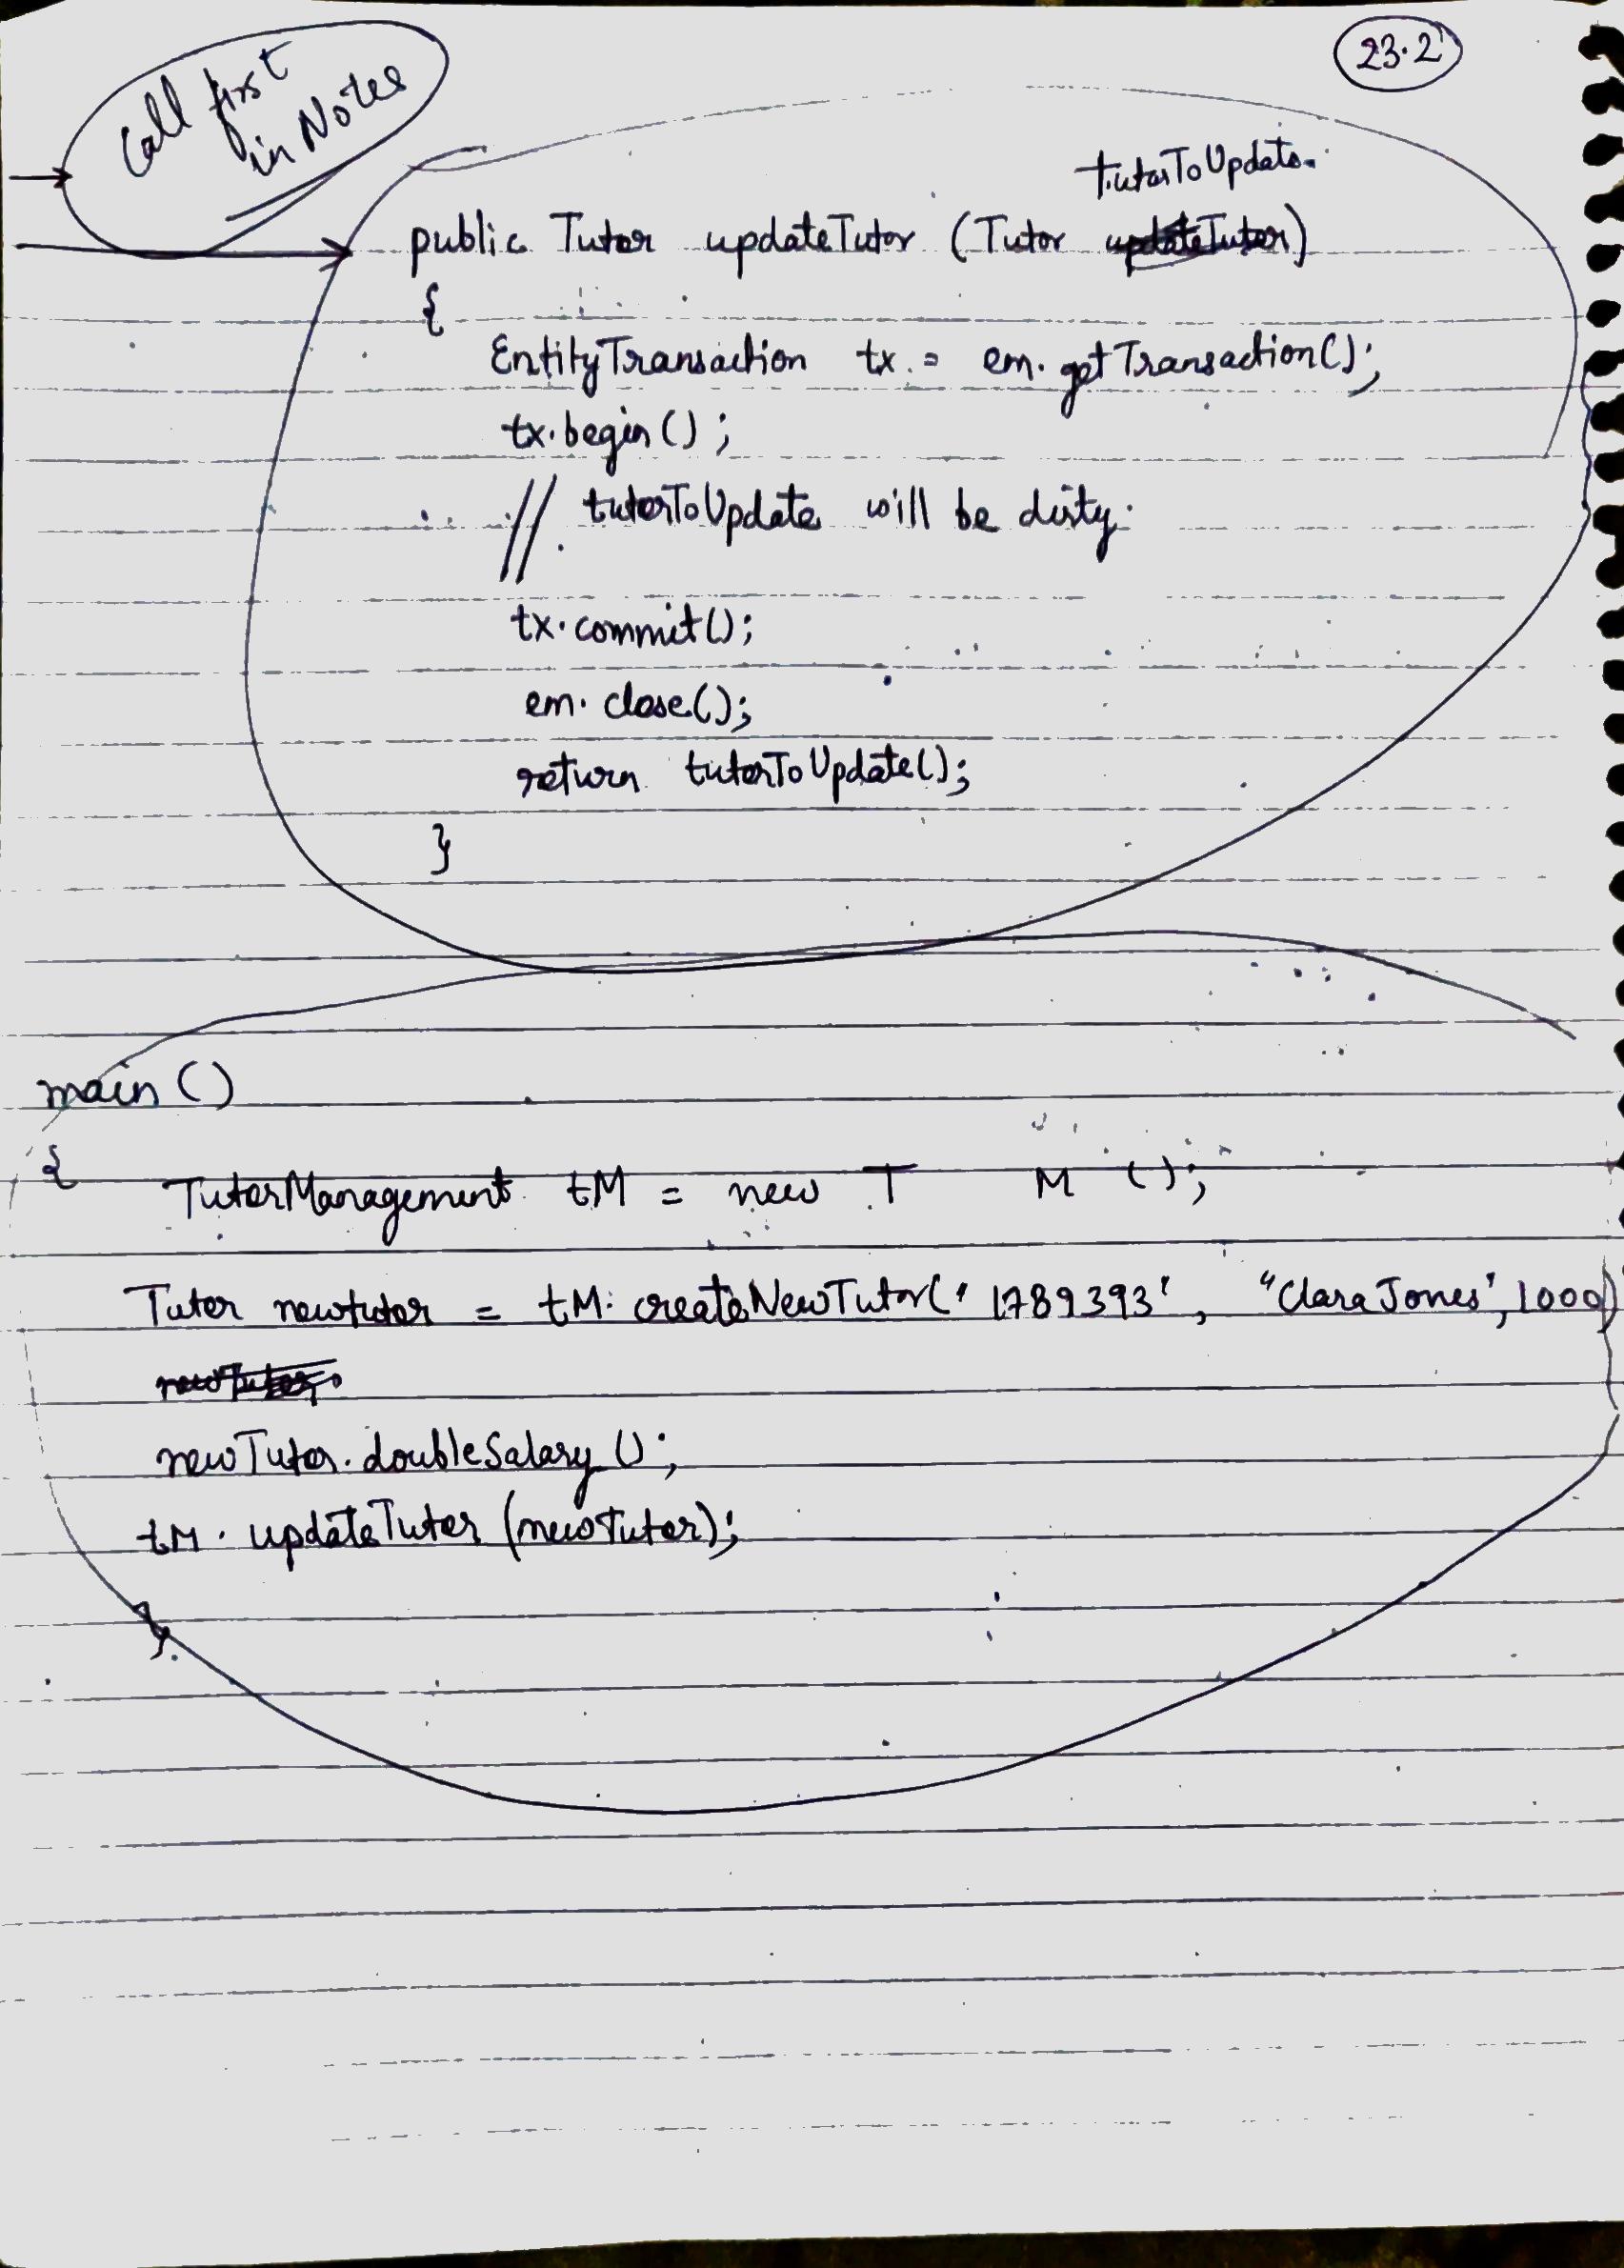 23.2
Call first
in Notes
tutorToUpdate.
public Tutor updateTutor (Tutor updateTutor)
{
EntityTransaction tx = em.getTransaction();
tx.begin();
// tutorToUpdate will be dirty.
tx.commit();
em.close();
return tutorToUpdate();
}
main ()
{
TutorManagement tM = new T M ();
Tutor newtutor = tM. createNewTutor(' 1789393', "Clara Jones', 1000)
newTutor.
newTutor.doubleSalary ();
tM. updateTutor (newTutor);
}